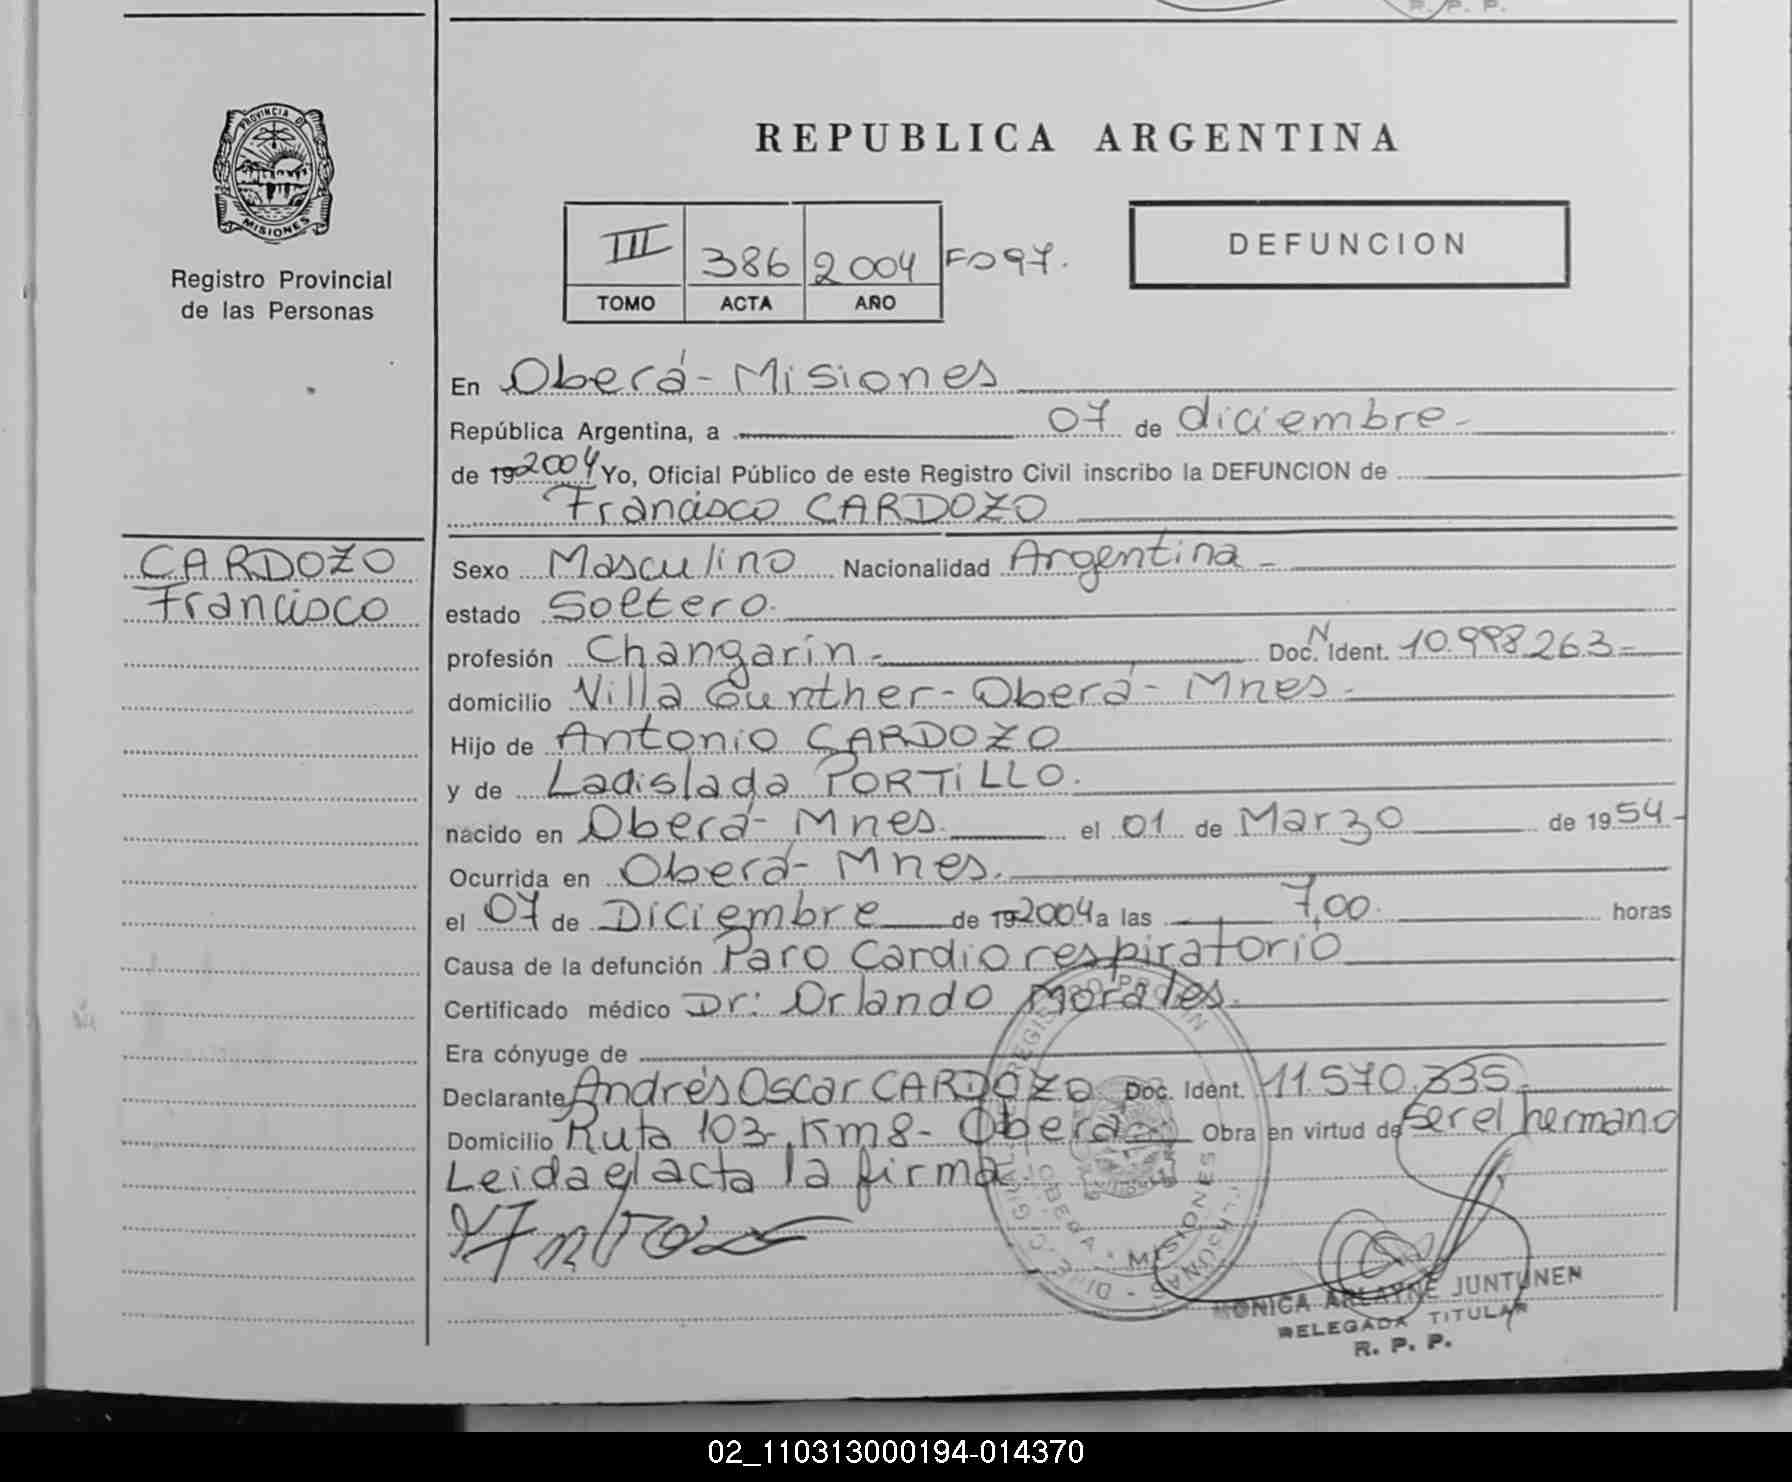 R. P. P.
PROVINCIA D
MISIONES
Registro Provincial
de las Personas
REPUBLICA ARGENTINA
III 386 2004 Fo 97.
TOMO ACTA AÑO
DEFUNCION
En Oberá - Misiones
República Argentina, a 07 de diciembre -
de 19 2004 Yo, Oficial Público de este Registro Civil inscribo la DEFUNCION de
Francisco CARDOZO
CARDOZO
Francisco
Sexo Masculino Nacionalidad Argentina -
estado Soltero.
profesión Changarín - Doc. N Ident. 10.998.263 -
domicilio Villa Gunther - Oberá - Mnes -
Hijo de Antonio CARDOZO
y de Ladislada PORTiLLO.
nacido en Oberá - Mnes. el 01 de Marzo de 1954 -
Ocurrida en Oberá - Mnes.
el 07 de Diciembre de 19 2004 a las 7,00. horas
Causa de la defunción Paro Cardiorespiratorio
Certificado médico Dr: Orlando Morales.
Era cónyuge de
Declarante Andrés Oscar CARDOZO Doc. Ident. 11.570.335 -
Domicilio Ruta 103 - Km 8 - Oberá Obra en virtud de Ser el hermano
Leida el acta la firma
OBERA - MISIONES
MONICA ARLAYNE JUNTUNEN
DELEGADA TITULAR
R. P. P.
02_110313000194-014370